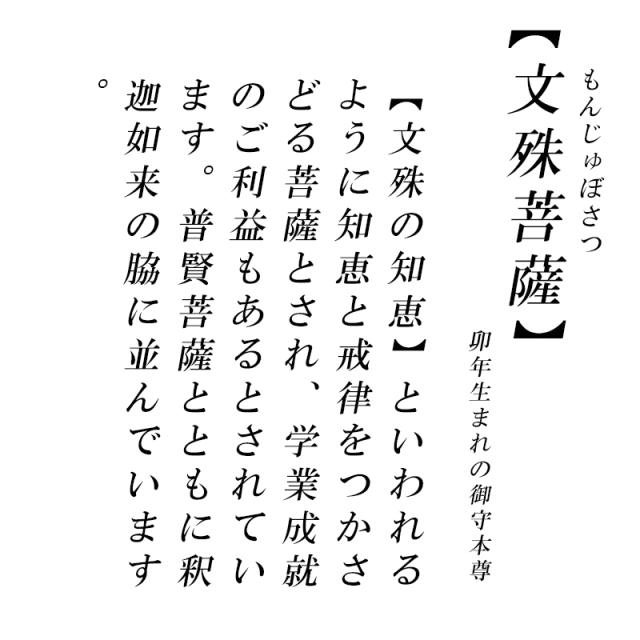 もんじゅぼさつ
【文殊菩薩】
卯年生まれの御守本尊
【文殊の知恵】といわれる
ように知恵と戒律をつかさ
どる菩薩とされ、学業成就
のご利益もあるとされてい
ます。普賢菩薩とともに釈
迦如来の脇に並んでいます
。